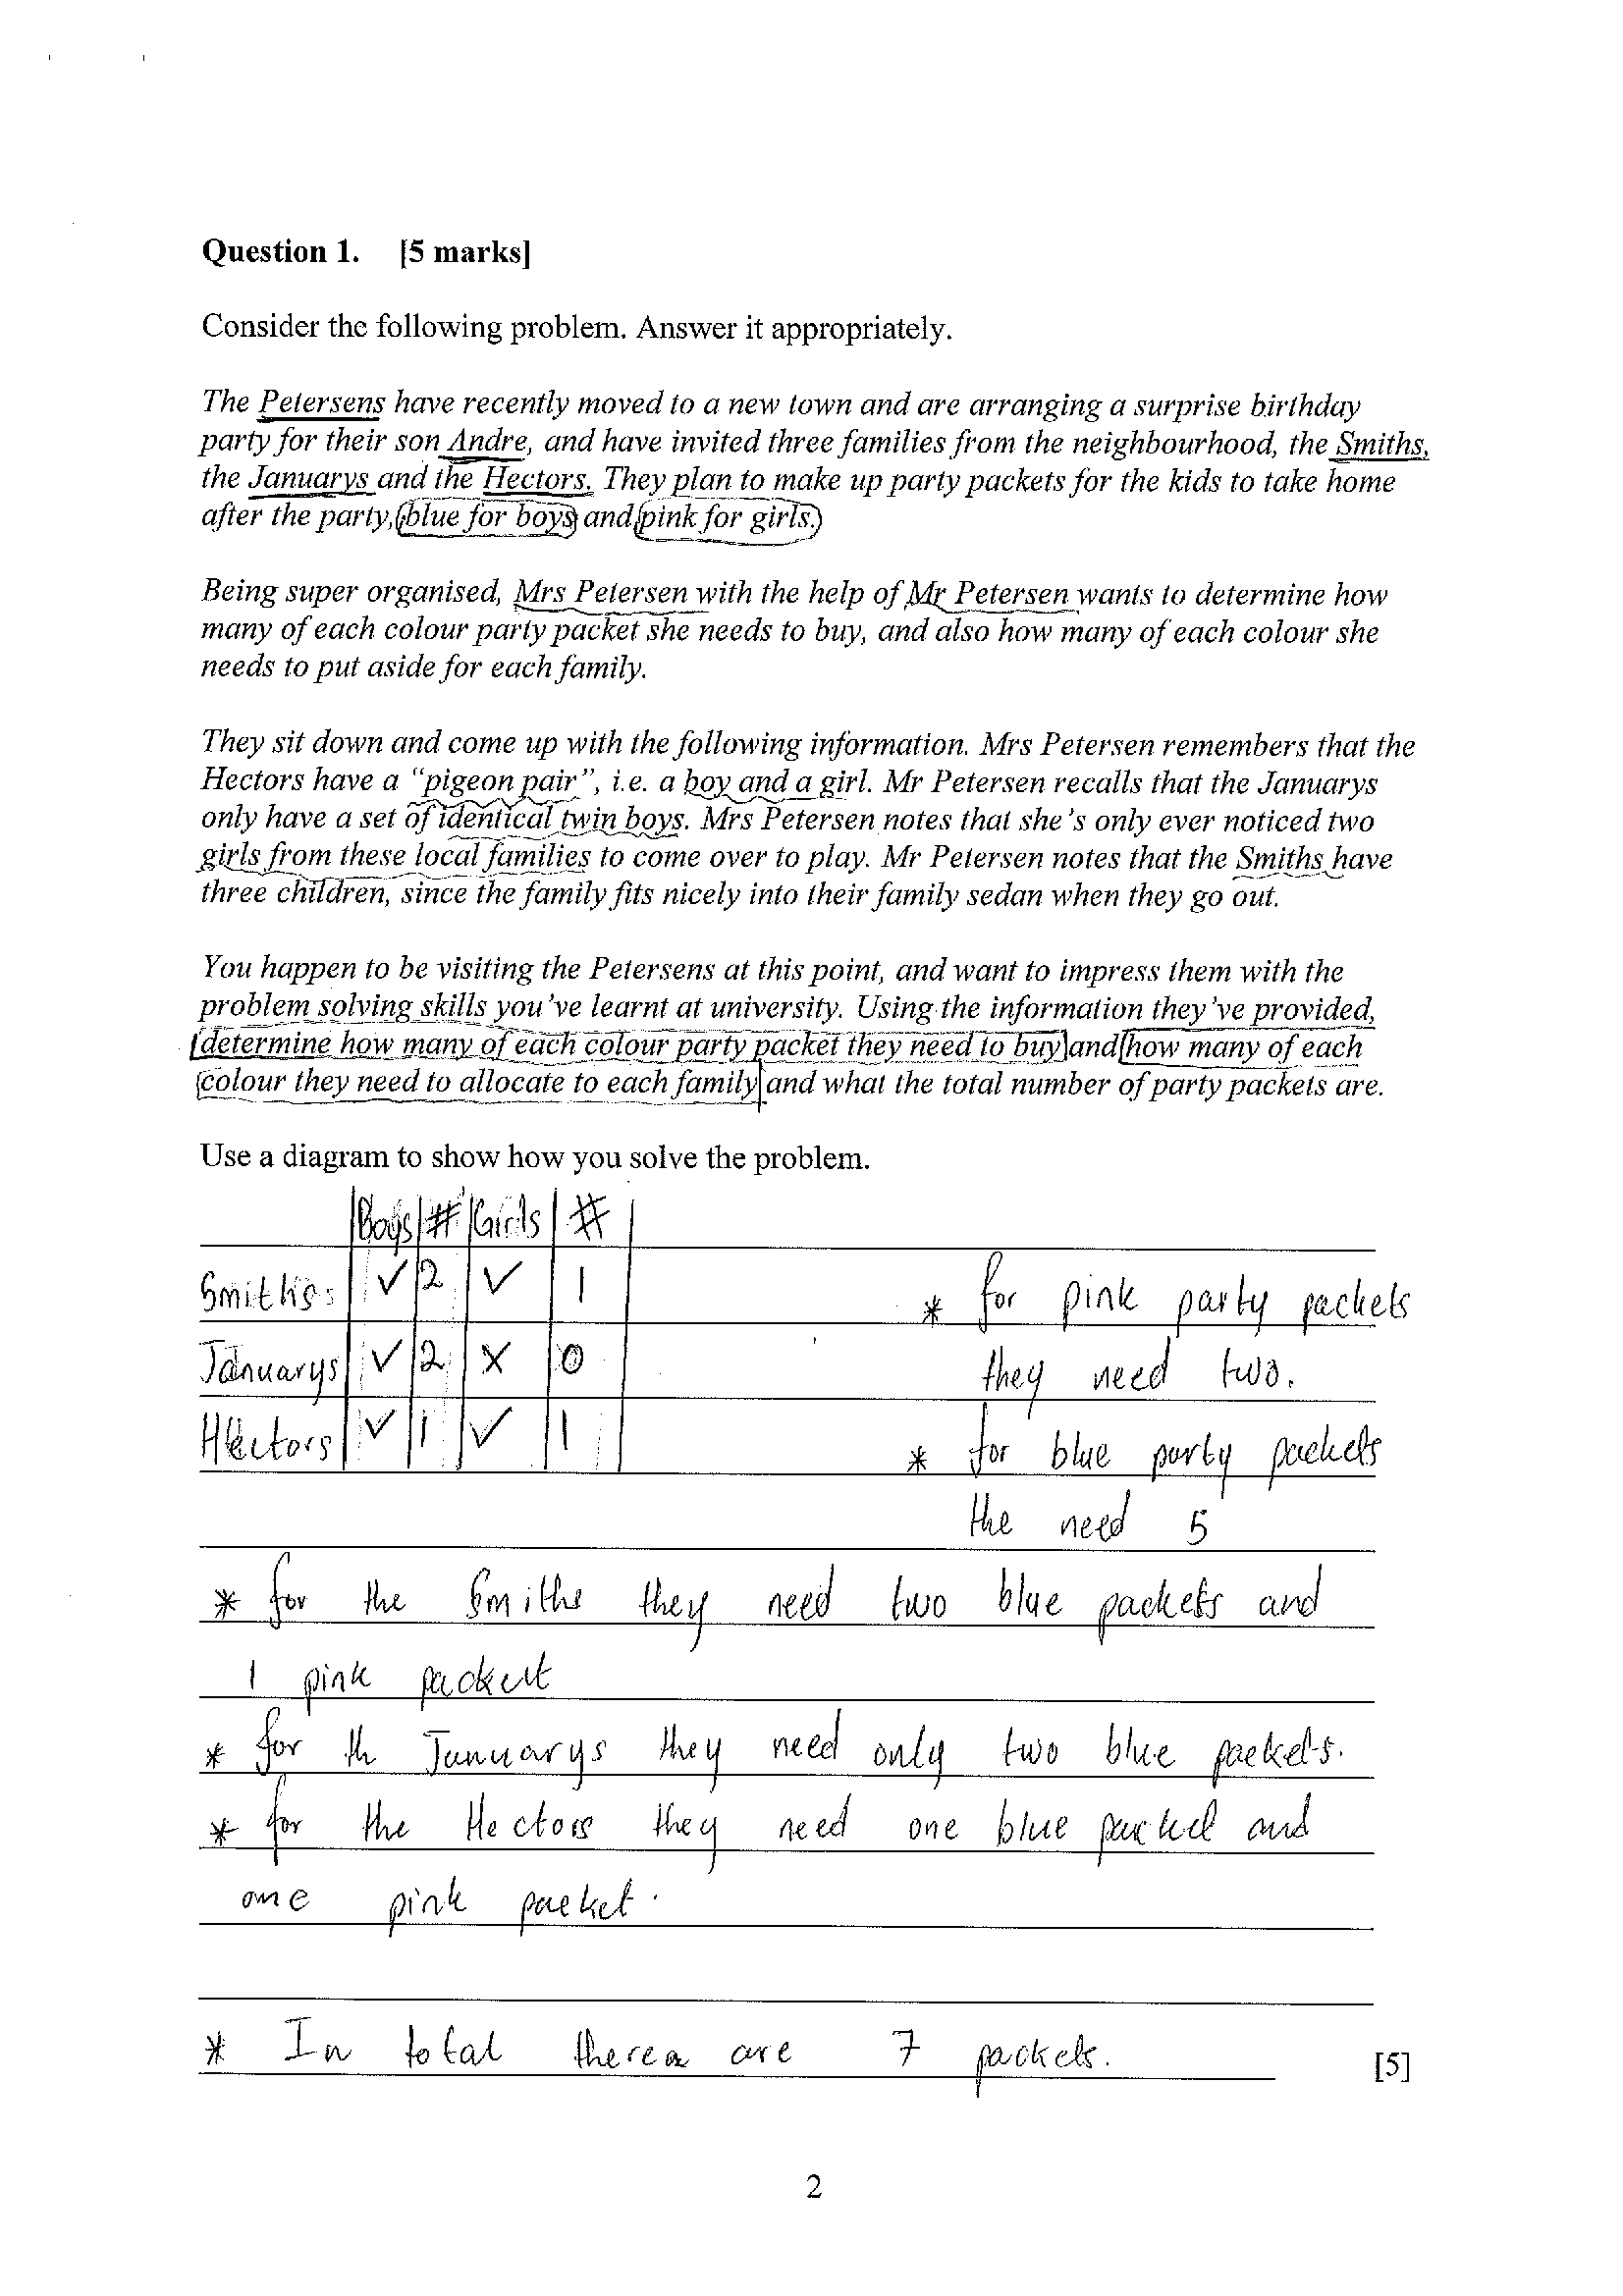 Question 1. [5 marks]
Consider the following problem. Answer it appropriately.
The Petersens have recently moved to a new town and are arranging a surprise birthday
party for their son Andre, and have invited three families from the neighbourhood, the Smiths,
the Januarys and the Hectors. They plan to make up party packets for the kids to take home
after the party, (blue for boys) and (pink for girls.)
Being super organised, Mrs Petersen with the help of Mr Petersen wants to determine how
many of each colour party packet she needs to buy, and also how many of each colour she
needs to put aside for each family.
They sit down and come up with the following information. Mrs Petersen remembers that the
Hectors have a “pigeon pair”, i.e. a boy and a girl. Mr Petersen recalls that the Januarys
only have a set of identical twin boys. Mrs Petersen notes that she's only ever noticed two
girls from these local families to come over to play. Mr Petersen notes that the Smiths have
three children, since the family fits nicely into their family sedan when they go out.
You happen to be visiting the Petersens at this point, and want to impress them with the
problem solving skills you've learnt at university. Using the information they've provided,
determine how many of each colour party packet they need to buy and how many of each
colour they need to allocate to each family and what the total number of party packets are.
Use a diagram to show how you solve the problem.
Boys # Girls #
Smiths ✓ 2 ✓ 1
* for pink party packets
Januarys ✓ 2 x 0
they need two.
Hectors ✓ 1 ✓ 1
* for blue party packets
the need 5
* for the Smiths they need two blue packets and
1 pink packet
* for th Januarys they need only two blue packets.
* for the Hectors they need one blue packet and
one pink packet.
* In total there are 7 packets.
[5]
2